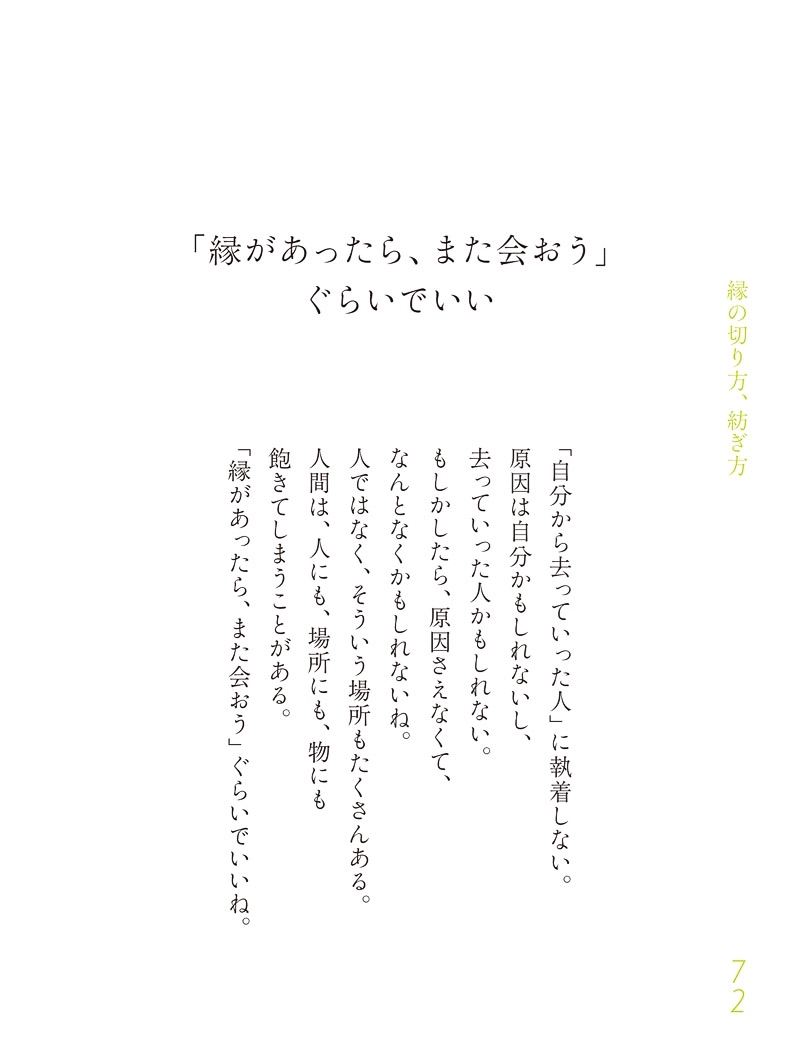 「縁があったら、また会おう」
ぐらいでいい
縁の切り方、紡ぎ方
「自分から去っていった人」に執着しない。
原因は自分かもしれないし、
去っていった人かもしれない。
もしかしたら、原因さえなくて、
なんとなくかもしれないね。
人ではなく、そういう場所もたくさんある。
人間は、人にも、場所にも、物にも
飽きてしまうことがある。
「縁があったら、また会おう」ぐらいでいいね。
72